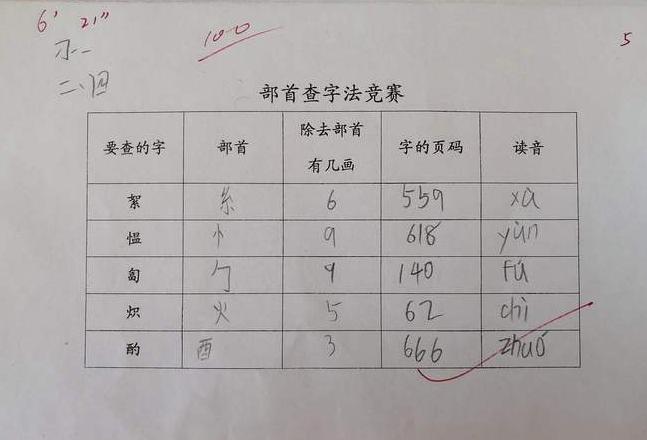 6' 21"
100
5
二、四
部首查字法竞赛
要查的字 部首 除去部首有几画 字的页码 读音
絮 糸 6 559 xù
愠 忄 9 618 yùn
匐 勹 9 140 fú
炽 火 5 62 chì
酌 酉 3 666 zhuó